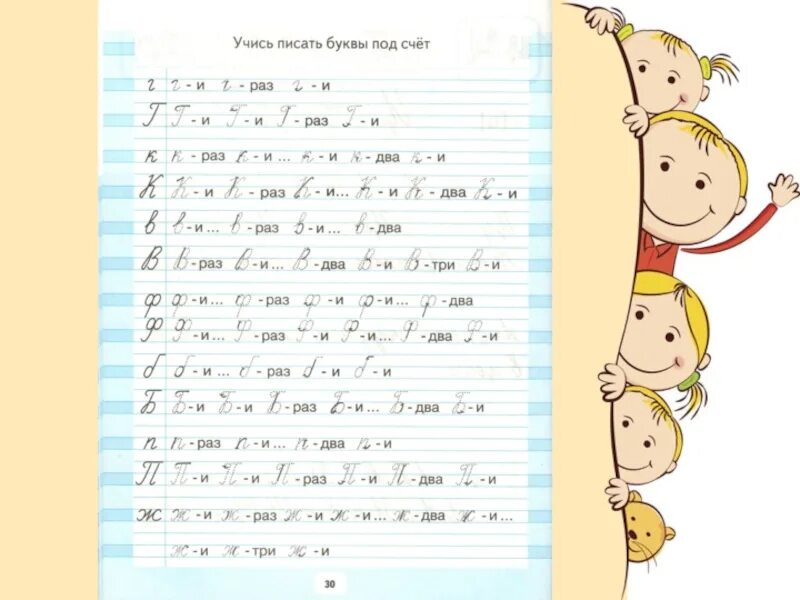 Учись писать буквы под счёт
г г - и г - раз г - и
Г Г - и Г - и Г - раз Г - и
к к - раз к - и ... к - и к - два к - и
К К - и К - раз К - и... К - и К - два К - и
в в - и ... в - раз в - и ... в - два
В В - раз В - и ... В - два В - и В - три В - и
ф ф - и ... ф - раз ф - и ф - и ... ф - два
Ф Ф - и ... Ф - раз Ф - и Ф - и ... Ф - два Ф - и
б б - и ... б - раз б - и б - и
Б Б - и Б - и Б - раз Б - и ... Б - два Б - и
п п - раз п - и ... п - два п - и
П П - и П - и П - раз П - и П - два П - и
ж ж - и ж - раз ж - и ж - и ... ж - два ж - и ...
ж - и ж - три ж - и
30